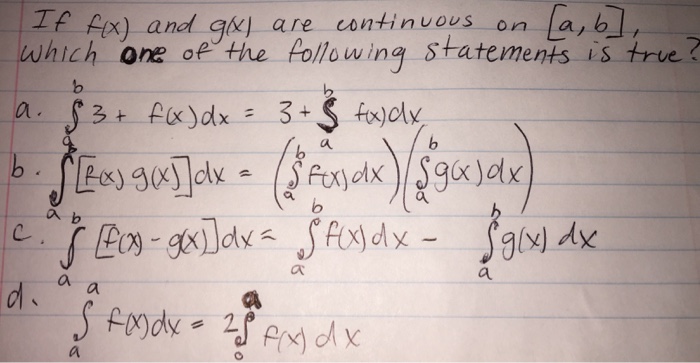 If f(x) and g(x) are continuous on [a,b],
which one of the following statements is true?
a. ∫_a^b 3 + f(x)dx = 3 + ∫_a^b f(x)dx
b. ∫_a^b [f(x) g(x)]dx = (∫_a^b f(x)dx)(∫_a^b g(x)dx)
c. ∫_a^b [f(x) - g(x)]dx = ∫_a^b f(x)dx - ∫_a^b g(x) dx
d. ∫_a^a f(x)dx = 2∫_0^a f(x)dx